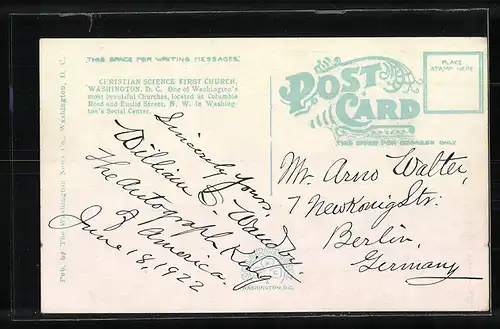 THIS SPACE FOR WRITING MESSAGES.
CHRISTIAN SCIENCE FIRST CHURCH,
WASHINGTON, D. C. One of Washington's
most beautiful Churches, located at Columbia
Road and Euclid Street, N. W. in Washing-
ton's Social Center.
Pub. by The Washington News Co., Washington, D. C.
Sincerely Yours,
William C.
The Autograph King
of America.
June 18, 1922
WASHINGTON, D.C.
POST
CARD
THIS SPACE FOR ADDRESS ONLY
PLACE
STAMP HERE
Mr. Arno Walter,
7 Newkönig Str:
Berlin,
Germany